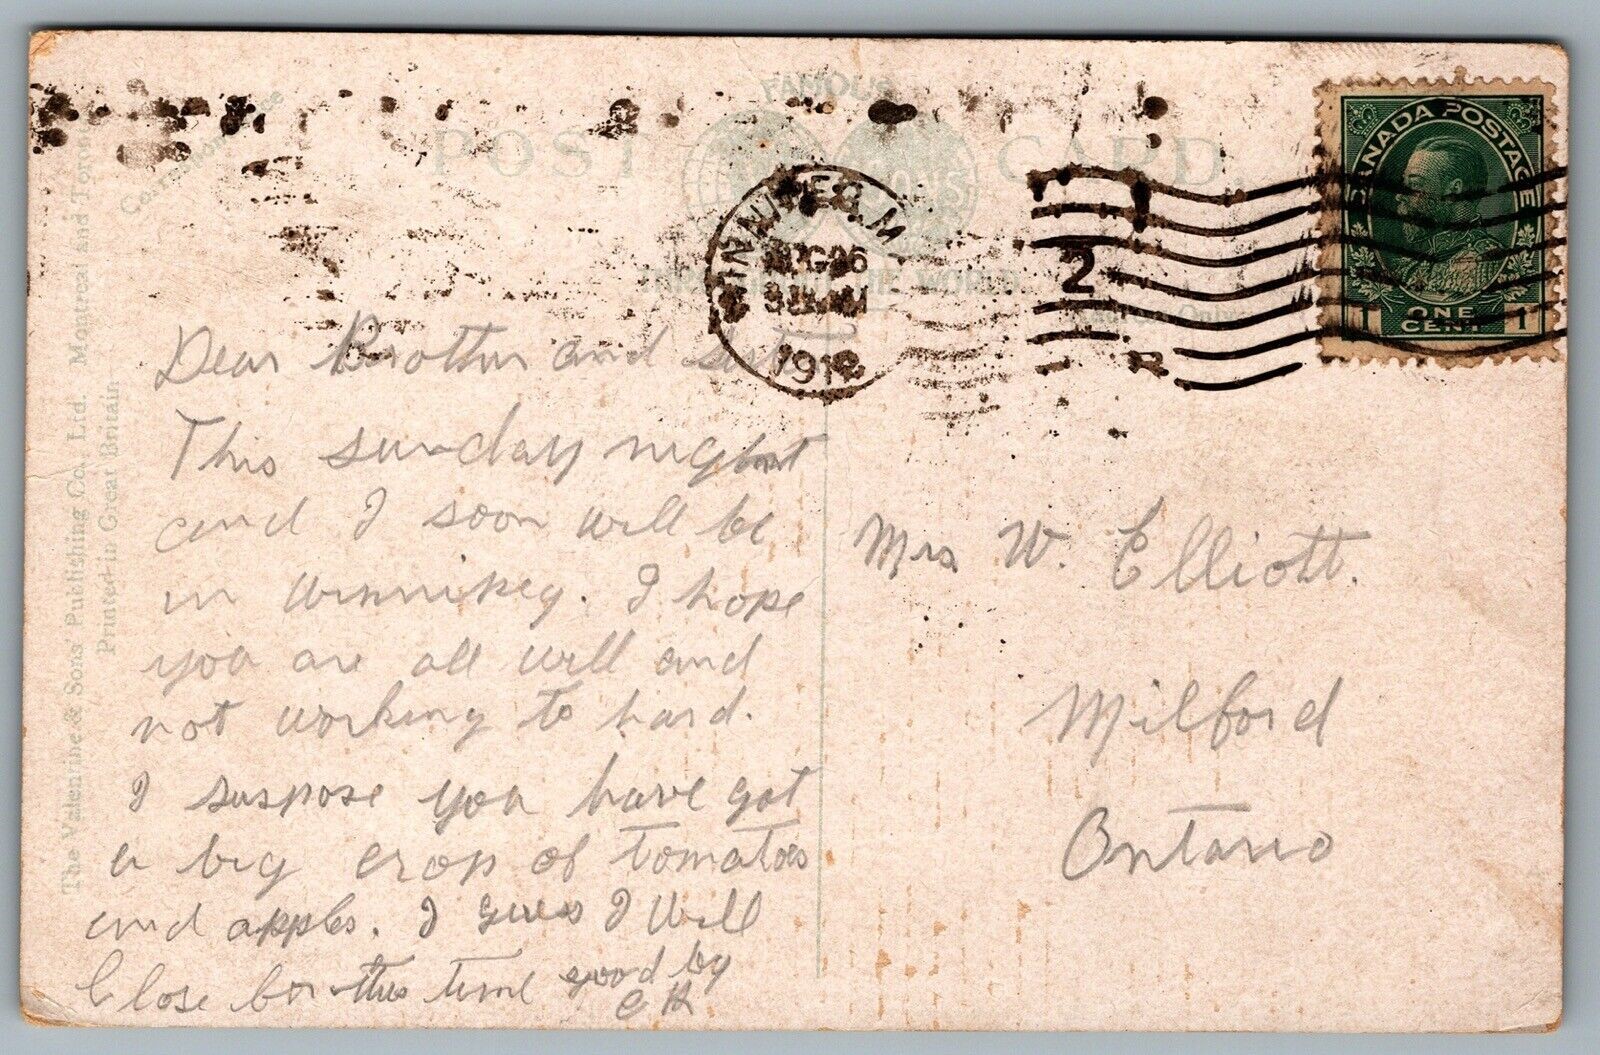 FAMOUS
POST CARD.
THROUGHOUT THE WORLD
Correspondence
The Valentine & Sons' Publishing Co., Ltd. Montreal and Toronto
Printed in Great Britain
WINNIPEG. M
1912
2
CANADA POSTAGE
1 ONE CENT 1
Dear Brother and sister
This sunday night
and I soon will be
in winnipeg. I hope
you are all well and
not working to hard.
I suspose you have got
a big crop of tomatoes
and apples. I guess I will
Close for this time good by
Mrs W. Elliott.
Milford
Ontario